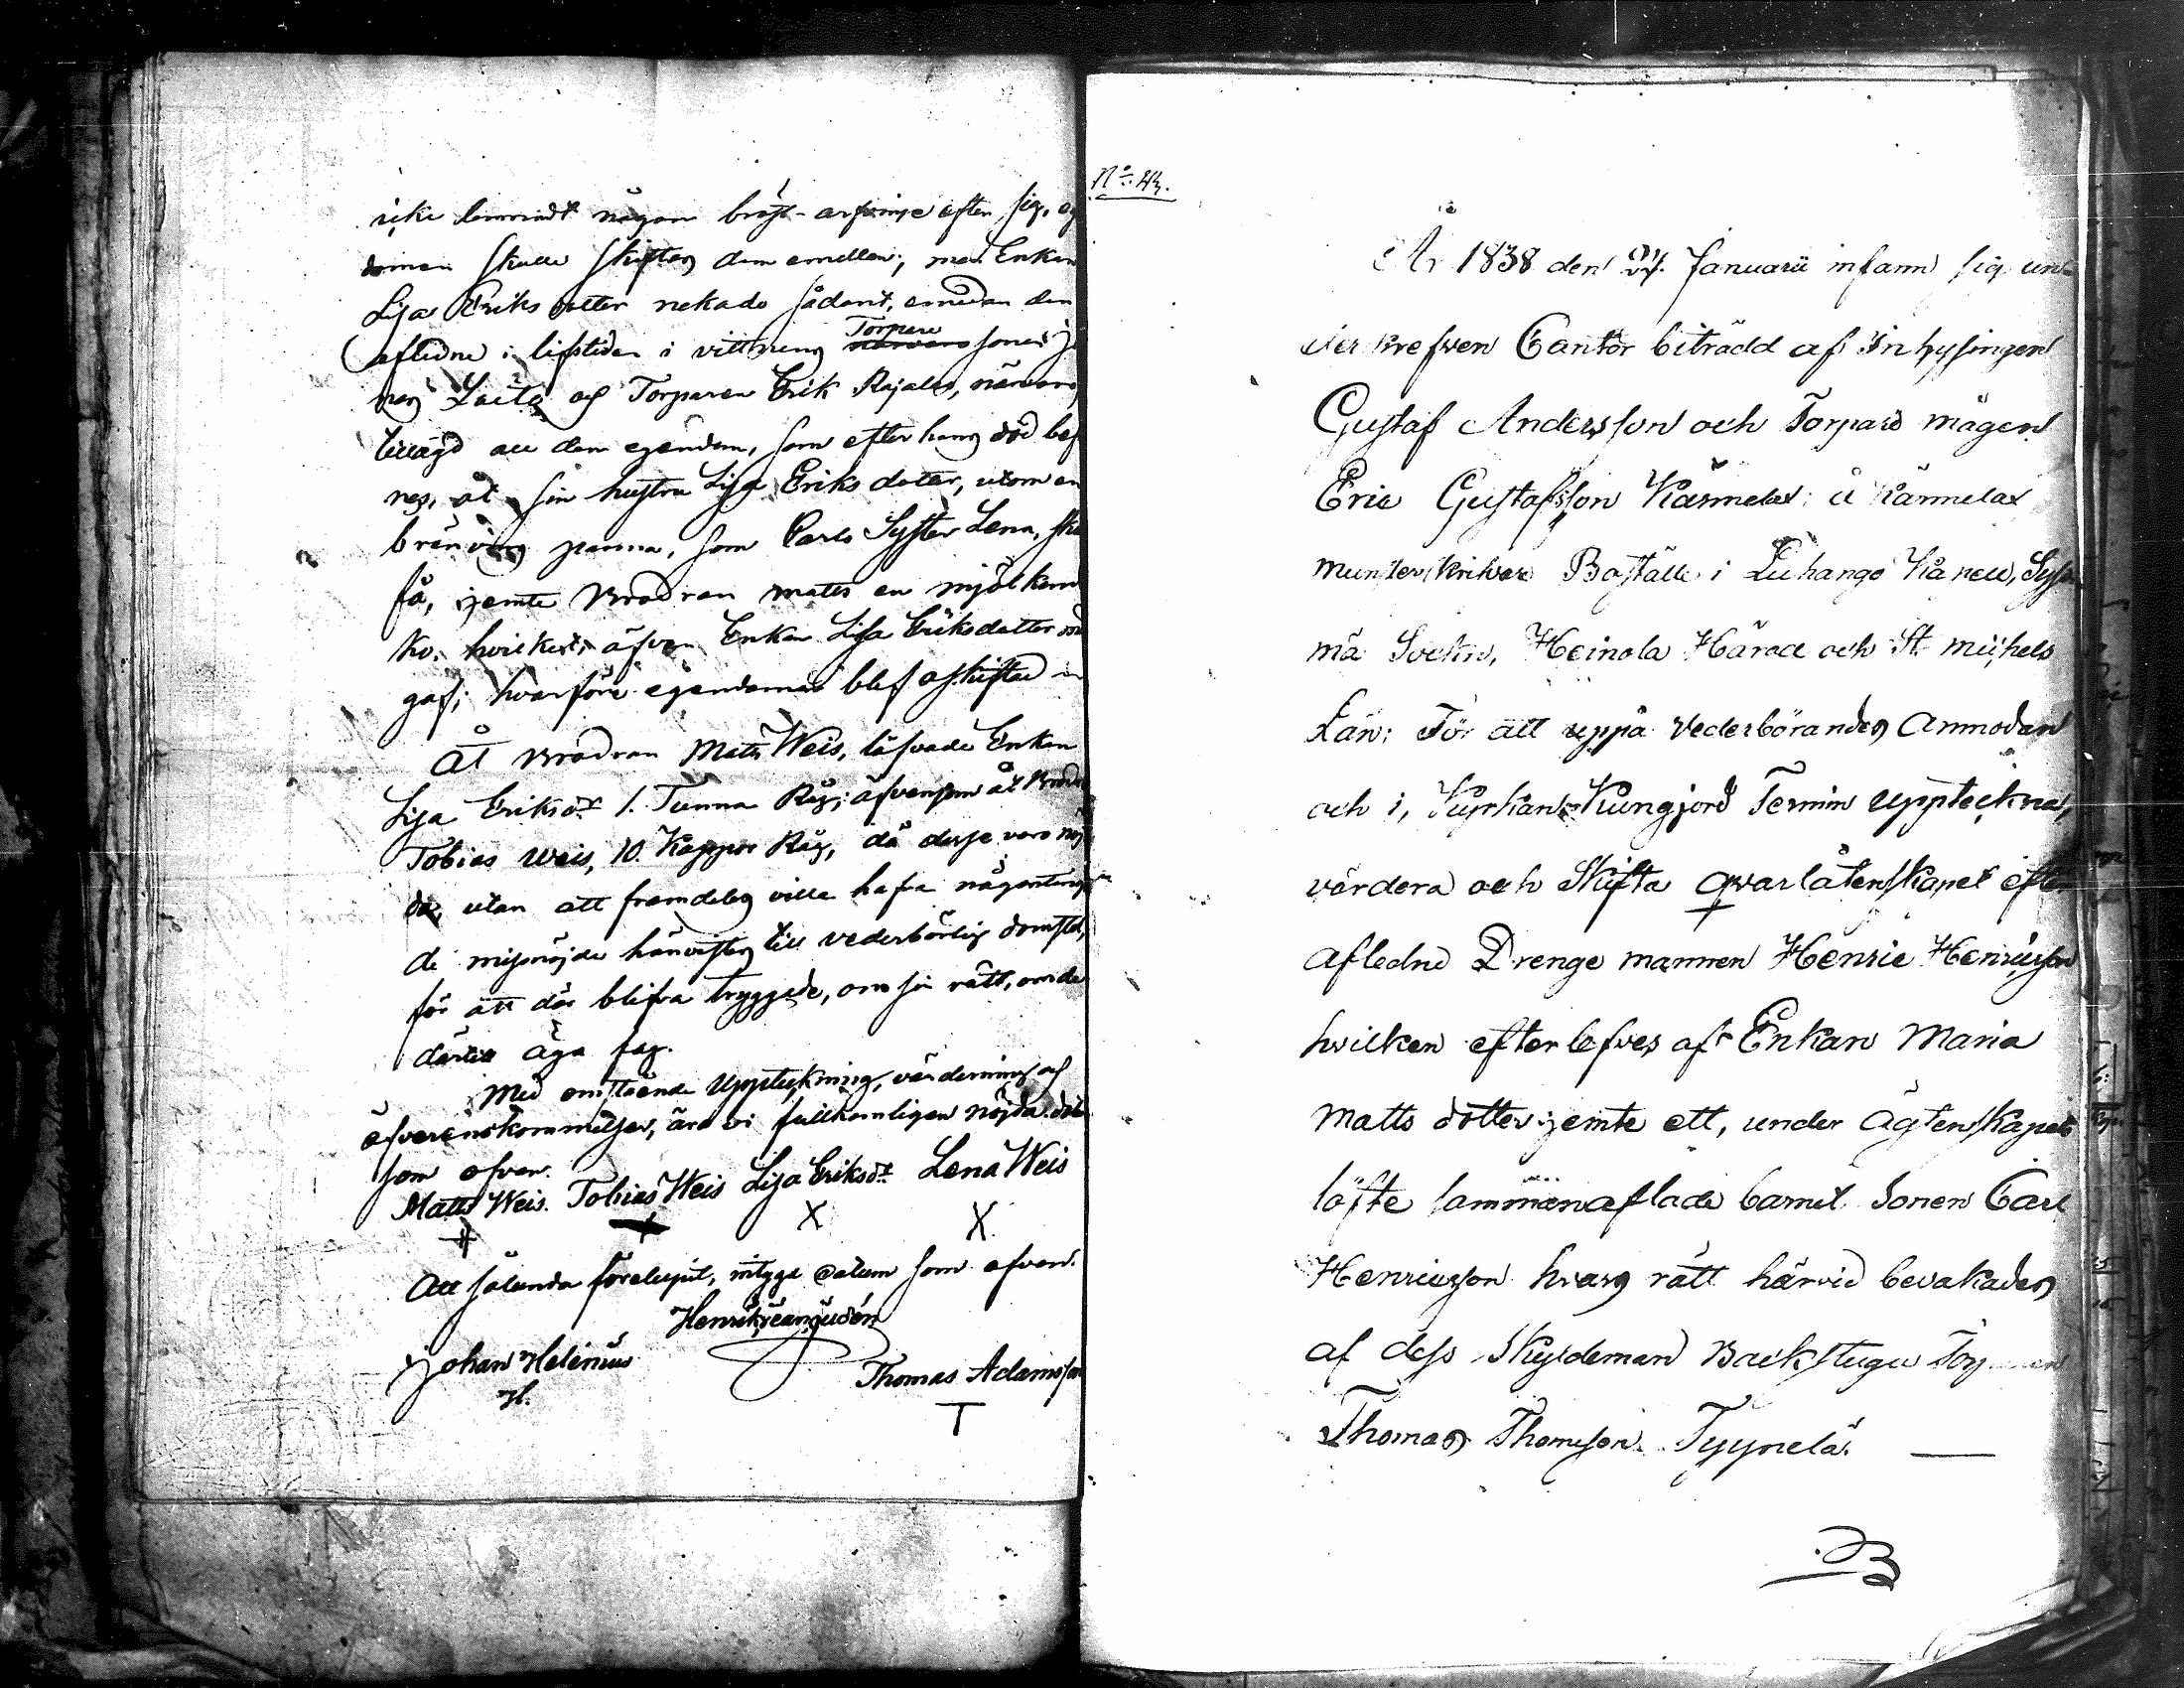 icke lemnadt någon bröst-arfvinge efter sig, og
domen skulle skiftas dem emellan; men Enkan
Lisa Eriksdotter nekade sådant, emedan den
aflidne i lifstiden i vittnens Torpare sonen Jo
Laita og Torparen Erik Rajala, närvaro
tillägd all den egendom, som efter hans död bef
nes, åt sin hustru Lisa Eriksdoter, utom en
bränvins panna, som Carls Syster Lena, ska
få, jemte Brodren Matts en mjölkan
Ko, hvilket, äfven Enkan Lisa Eriksdotter
gaf; hvarföre egendomen blef oskiftad
Åt Brodren Matts Weis, låfvade Enkan
Lisa Eriksdr 1. Tunna Råg; äfvensom åt Brodr
Tobias Weis, 10. Kappor Råg, då desse voro nöj
da, utan att framdeles ville hafva någonting
de missnöjde hänvistes till vederbörlig domstol,
för att där blifva tryggade, om sin rätt, om de
därtill äga fog.
Med omstående Uppteckning, värdering og
öfverenskommelser, äro vi fullkomligen nöjda
som ofvan.
Matts Weis. Tobias Weis Lisa Eriksdr Lena Weis
X X
Att sålunda föreluput, intyga Datum som ofvan.
Henrik
Johan Helenius Thomas Adamsson
H. T
No 43.
År 1838 den Januarii infann sig un-
derskrefven Cantor biträdd af Inhysingen
Gustaf Andersson och Torpare mågen
Eric Gustafsson Kärmelax å Kärmelax
munsterskrifvare Boställe i Luhango Kapell, Sys
mä Sockn, Heinola Härad och St. Michels
Län; För att uppå Vederbörandes Anmodan
och i, Termin uppteckna,
värdera och Skifta qvarlåtenskapet efter
Afledne Drenge mannen Henric Henricsson
hvilken efterlefves af Enkan Maria
Matts dotter jemte ett, under Ägtenskapets
löfte sammanaflade barnet Sonen Carl
Henricsson hvars rätt härvid bevakades
af dess Skyldeman Backstugu
Thomas Thomsson Tyynelä. —